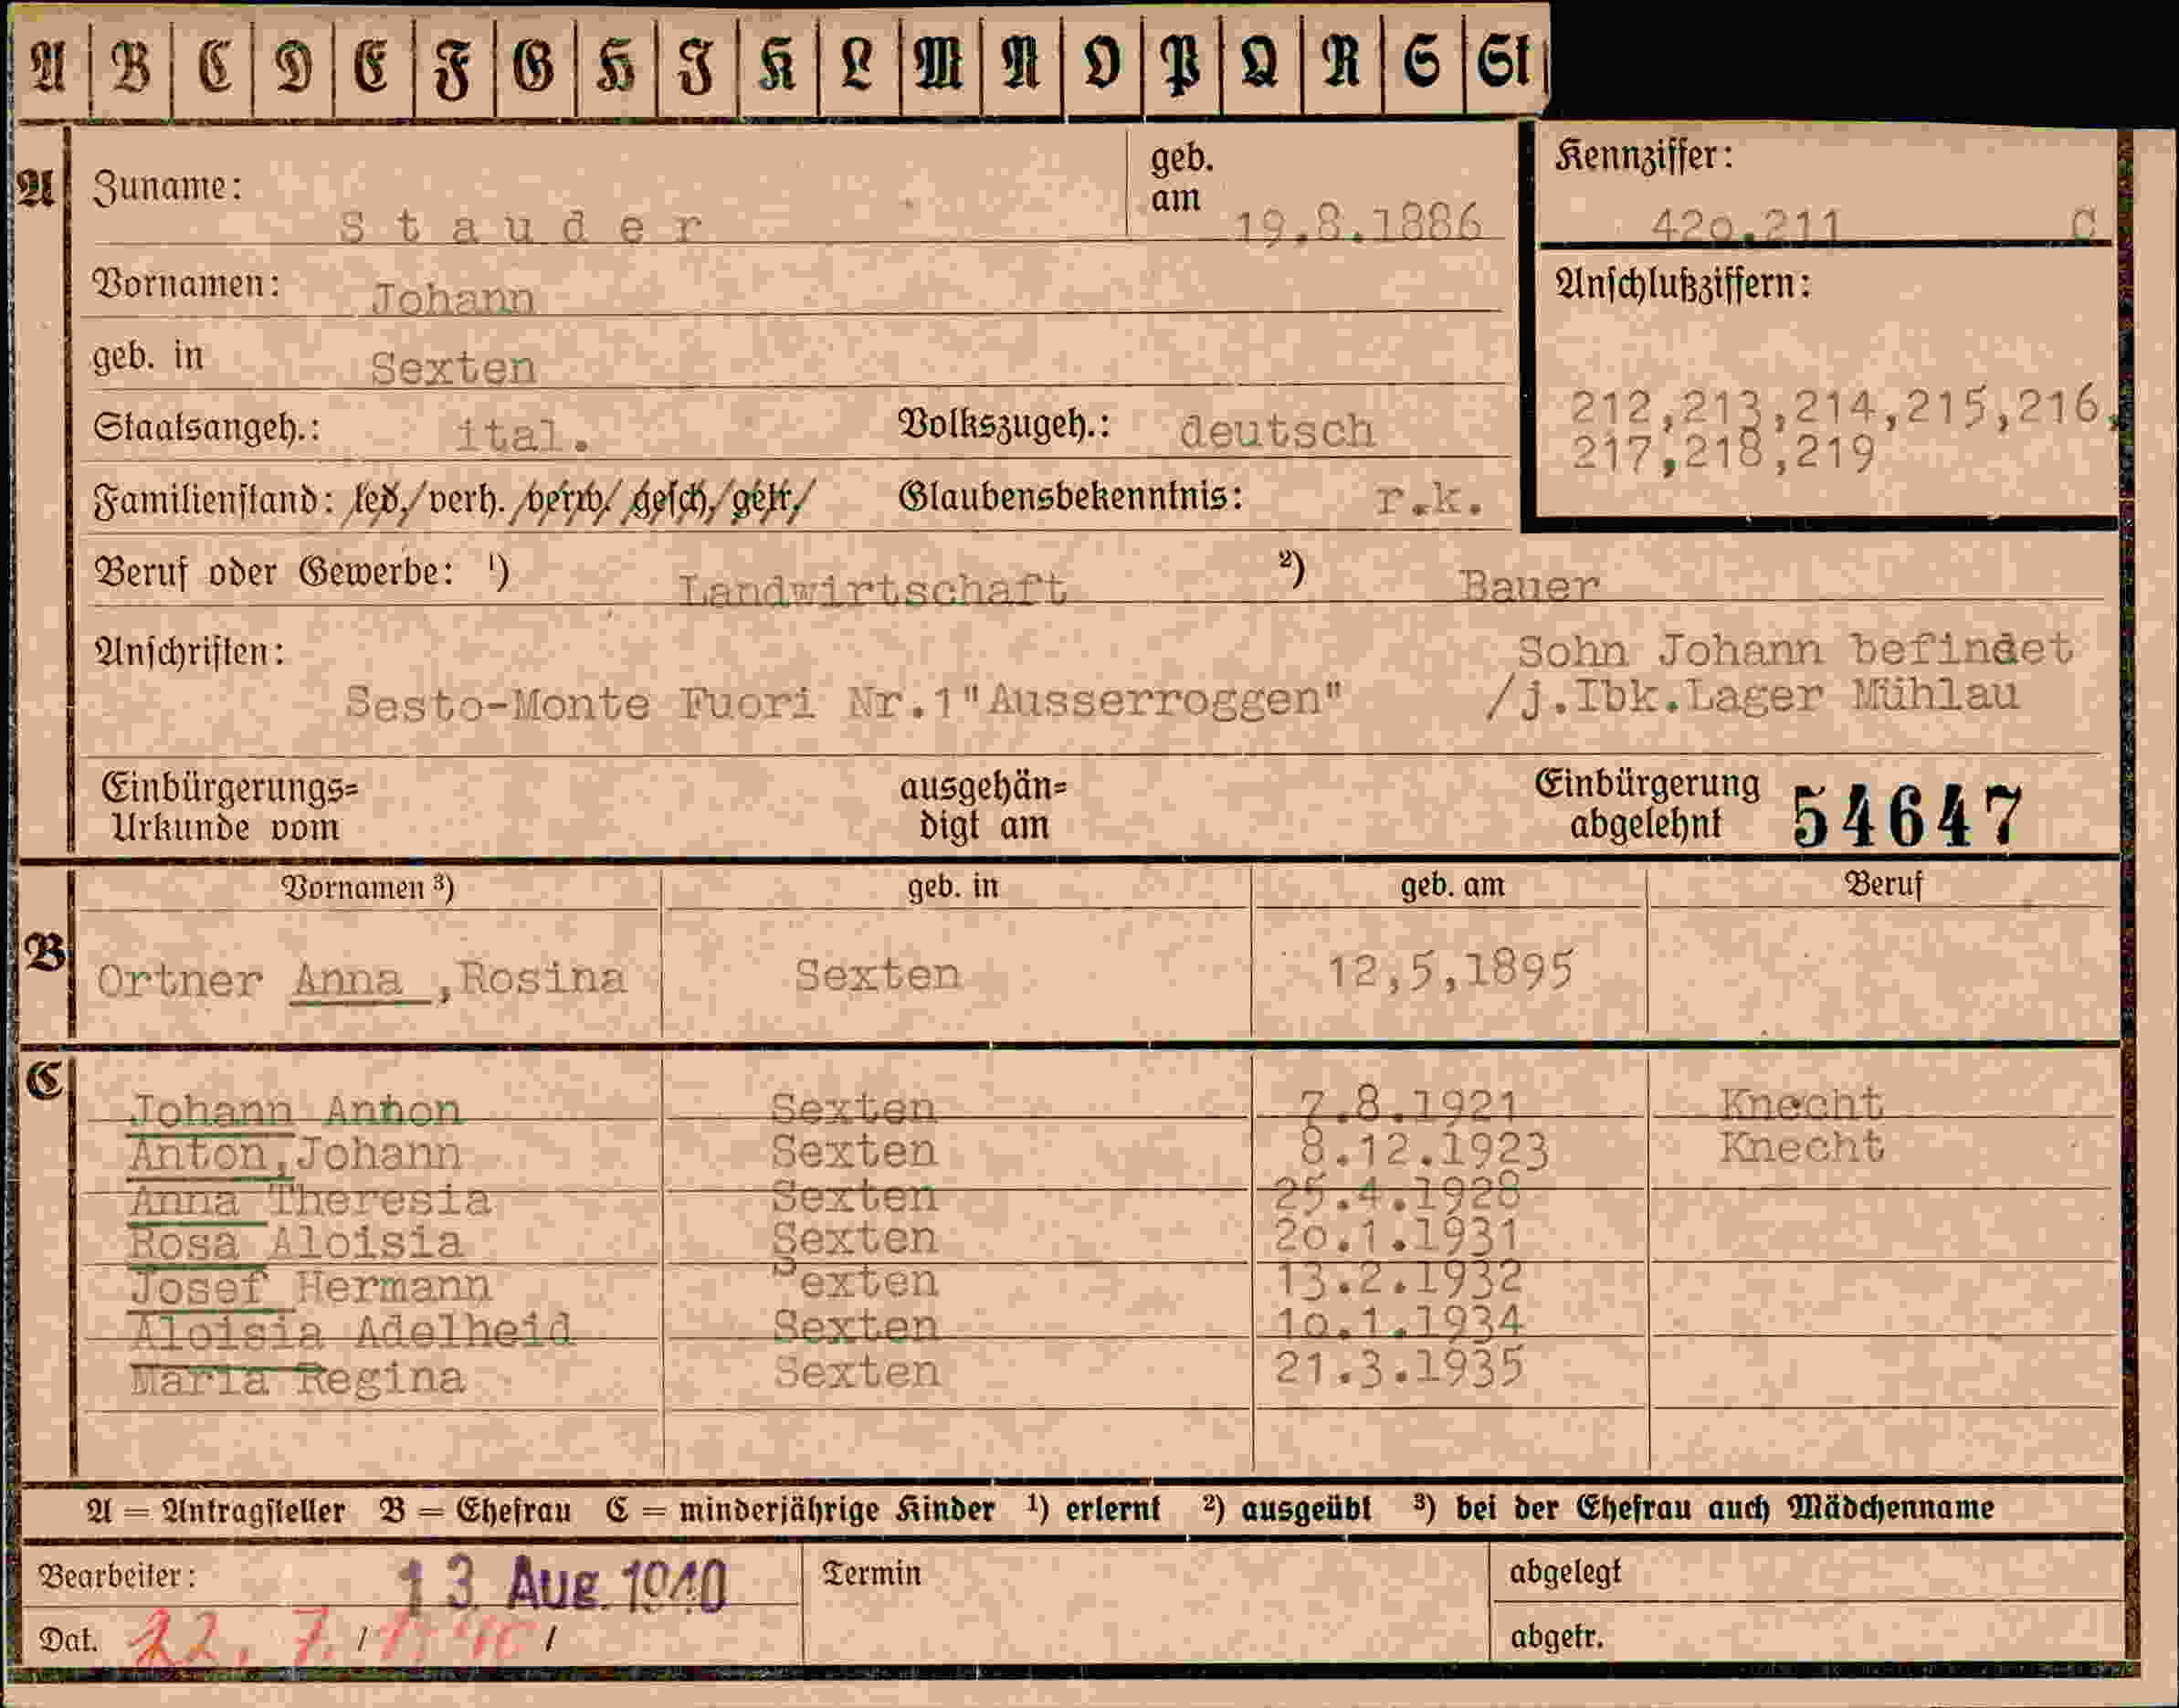 A B C D E F G H J K L M N O P Q R S St
A Zuname: Stauder geb. am 19.8.1886 Kennziffer: 42o.211 C
Vornamen: Johann Anschlußziffern:
geb. in Sexten
212,213,214,215,216,
Staatsangeh.: ital. Volkszugeh.: deutsch
217,218,219
Familienstand: led./verh./verw/gesch/getr/ Glaubensbekenntnis: r.k.
Beruf oder Gewerbe: 1) Landwirtschaft 2) Bauer
Anschriften: Sohn Johann befindet
Sesto-Monte Fuori Nr.1"Ausserroggen" /j.Ibk.Lager Mühlau
Einbürgerungs= ausgehän= Einbürgerung
Urkunde vom digt am abgelehnt 54647
Vornamen 3) geb. in geb. am Beruf
B Ortner Anna ,Rosina Sexten 12,5,1895
C
Johann Anton Sexten 7.8.1921 Knecht
Anton,Johann Sexten 8.12.1923 Knecht
Anna Theresia Sexten 25.4.1928
Rosa Aloisia Sexten 2o.1.1931
Josef Hermann Sexten 13.2.1932
Aloisia Adelheid Sexten 1o.1.1934
Maria Regina Sexten 21.3.1935
A = Antragsteller B = Ehefrau C = minderjährige Kinder 1) erlernt 2) ausgeübt 3) bei der Ehefrau auch Mädchenname
Bearbeiter: 13. Aug. 1940 Termin abgelegt
Dat. 22. 7. / 1940 / abgetr.